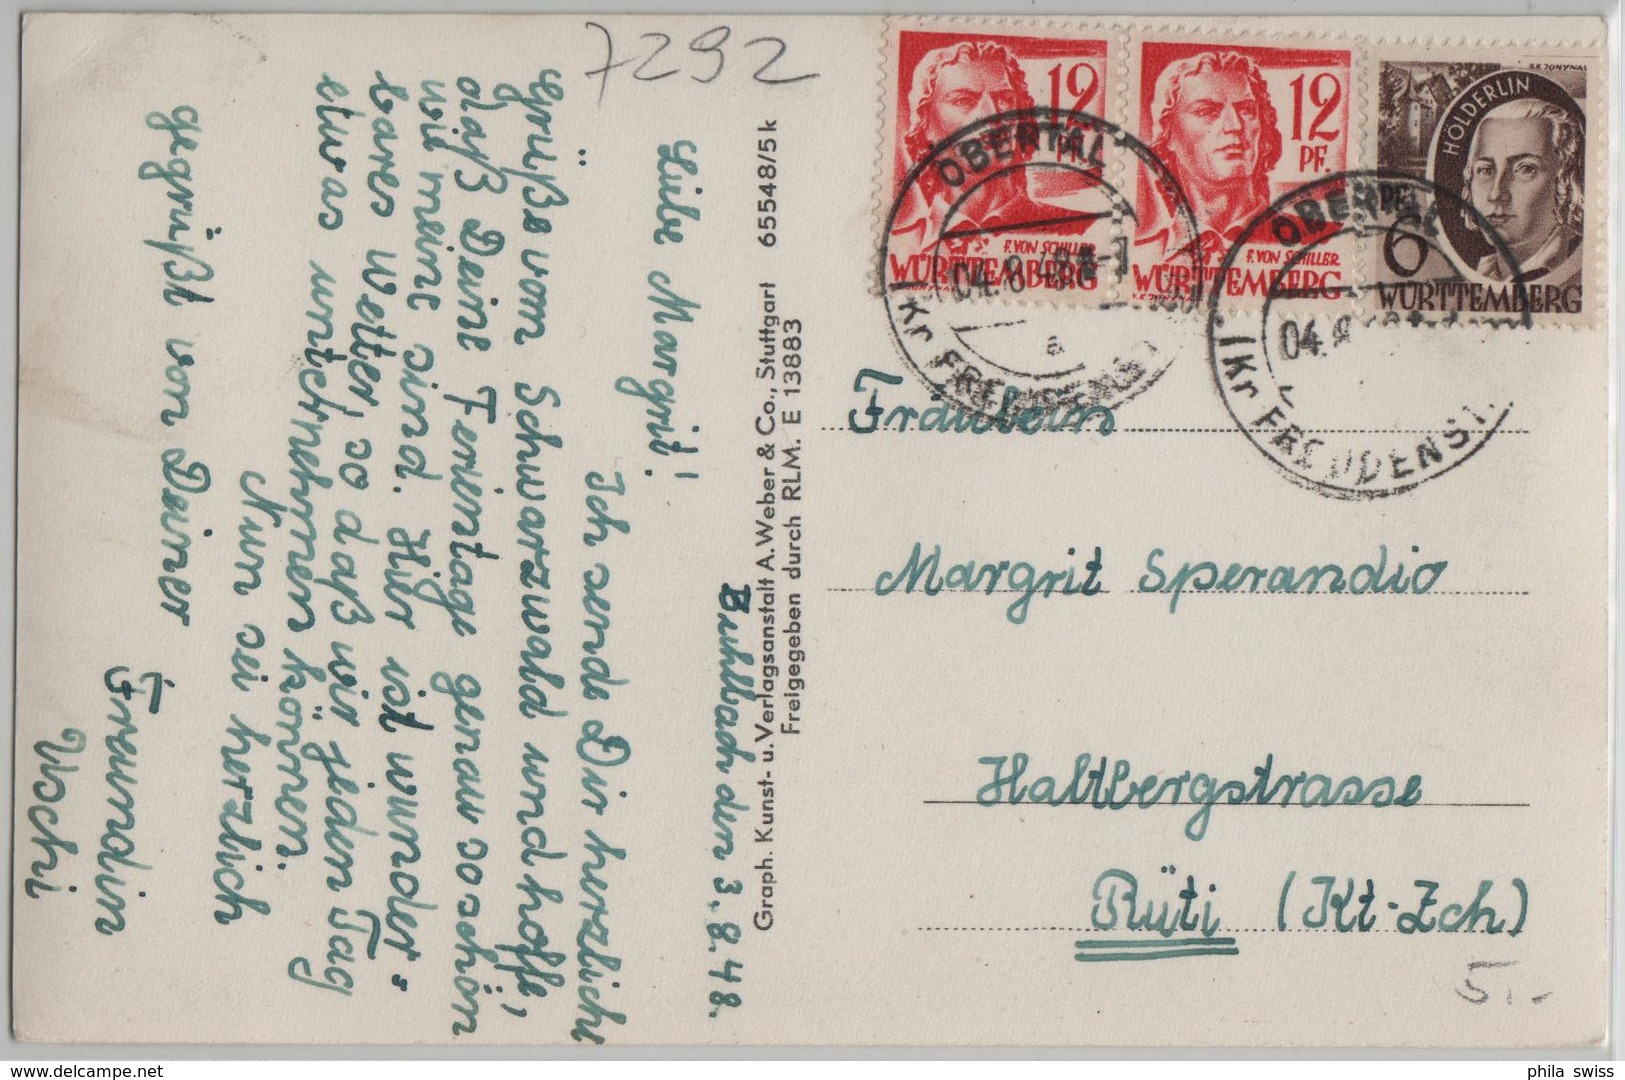 7292
Buhlbach den 3.8.48.
Liebe Margrit!
Ich sende Dir herzliche
Grüße vom Schwarzwald und hoffe,
daß Deine Ferientage genau so schön
wie meine sind. Hier ist wunder-
bares Wetter, so daß wir jeden Tag
etwas unternehmen können.
Nun sei herzlich
gegrüßt von Deiner
Freundin
Uschi
Graph. Kunst- u. Verlagsanstalt A. Weber & Co., Stuttgart 65548/5k
Freigegeben durch RLM. E 13883
12
PF.
F. VON SCHILLER
WÜRTTEMBERG
12
PF.
F. VON SCHILLER
WÜRTTEMBERG
V.K. JONYNAS
HÖLDERLIN
PF.
6
WÜRTTEMBERG
OBERTAL
04.8.48
a
(Kr FREUDENST.
OBERTAL
04.8
(Kr FREUDENST.
Fräulein
Margrit Sperandio
Haltbergstrasse
Rüti (Kt-Zch)
5.-
delcampe.net
phila swiss